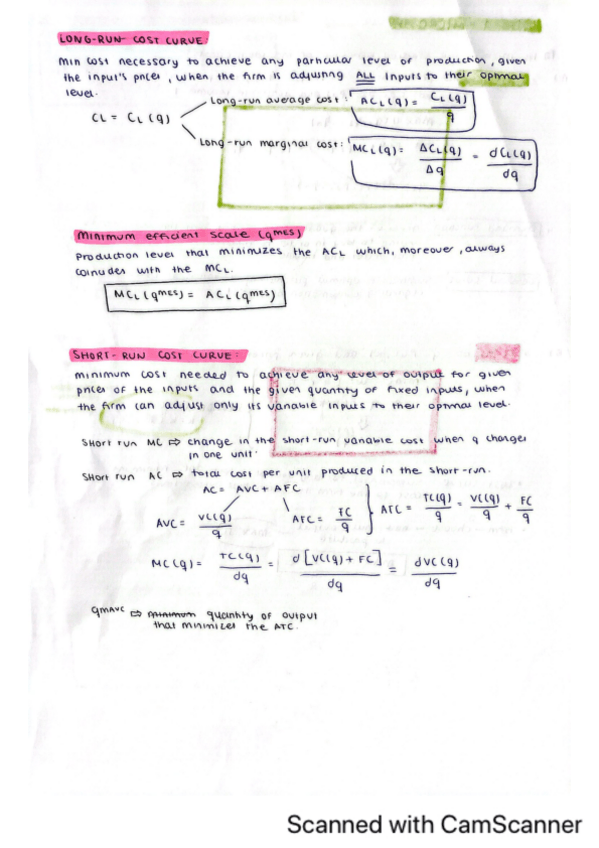 LONG-RUN COST CURVE:
Min cost necessary to achieve any particular level of production, given
the input's prices, when the firm is adjusting ALL inputs to their optimal
level.
Long-run average cost: ACL(q) = CL(q) / q
CL = CL(q)
Long-run marginal cost: MCL(q) = ΔCL(q) / Δq = dCL(q) / dq
Minimum efficient scale (qMES)
Production level that minimizes the ACL which, moreover, always
coincides with the MCL.
MCL(qMES) = ACL(qMES)
SHORT-RUN COST CURVE:
minimum cost needed to achieve any level of output for given
prices of the inputs and the given quantity of fixed inputs, when
the firm can adjust only its variable inputs to their optimal level.
Short run MC ⇨ change in the short-run variable cost when q changes
in one unit.
Short run AC ⇨ total cost per unit produced in the short-run.
AC = AVC + AFC
AVC = VC(q) / q AFC = FC / q } ATC = TC(q) / q = VC(q) / q + FC / q
MC(q) = TC(q) / dq = d[VC(q) + FC] / dq = dVC(q) / dq
qMAVC ⇨ minimum quantity of output
that minimizes the ATC.
Scanned with CamScanner